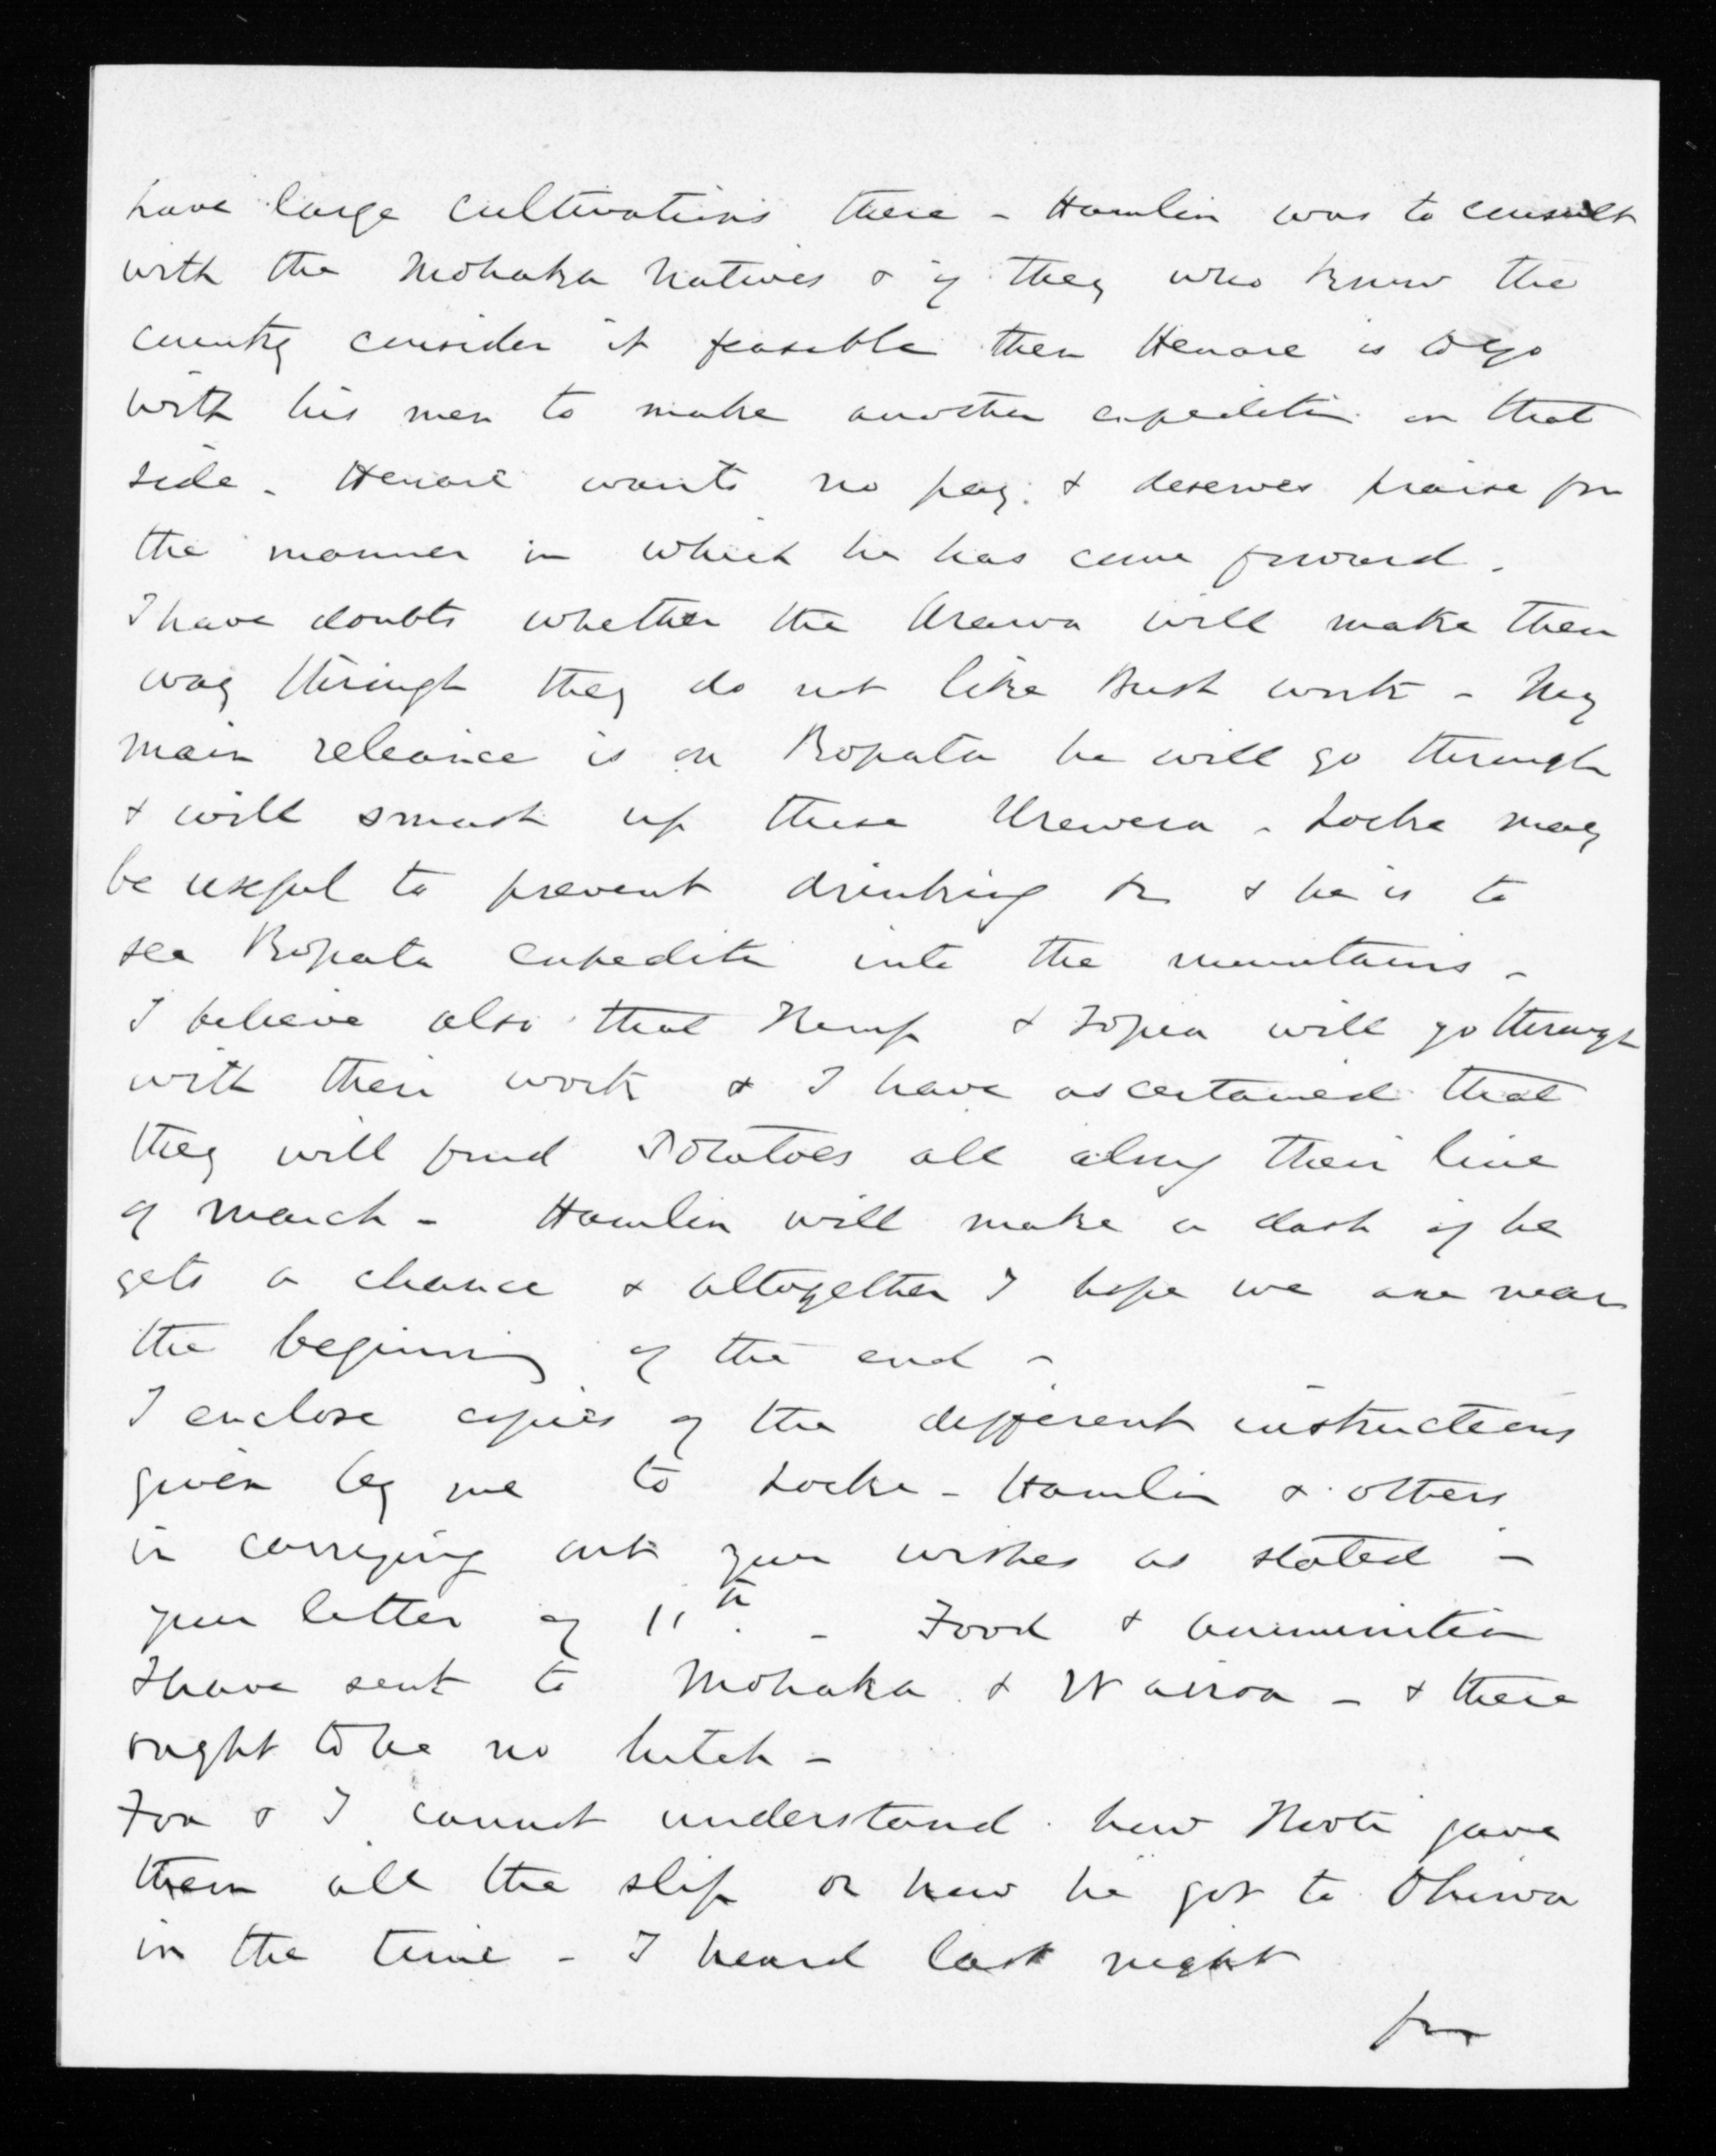 have large cultivations there - Hamlin was to consult
with the Mohaka Natives & if they who know the
country consider it feasable then Henare is to go
with his men to make another expedition on that
side - Henare wants no pay. & deserves praise for
the manner in which he has come forward.
I have doubts whether the Arawa will make their
way through they do not like Bush work - My
main releance is on Ropata he will go through
& will smash up these Urewera - Locke may
be useful to prevent drinking & he is to
see Ropata expedition into the mountains -
I believe also that Kemp & Topia will go through
with their work & I have ascertained that
they will find Potatoes all along their line
of march - Hamlin will make a dash if he
gets a chance & altogether I hope we are near
the beginning of the end -
I enclose copies of the different instructions
given by me to Locke - Hamlin & others
in carrying out your wishes as stated in
your letter of 11th. - Food & ammunition
I have sent to Mohaka & Wairoa - & there
ought to be no hitch -
For & I cannot understand how Kooti gave
them all the slip or how he got to Ohiwa
in the time - I heard last night
from